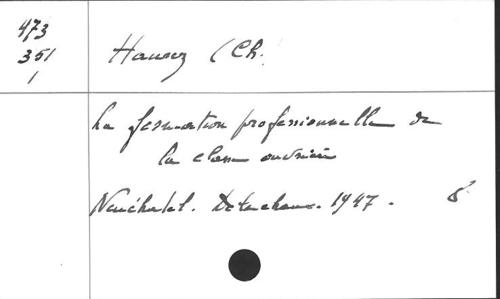 473
351
1
Hausez (Ch.
La formation professionnelle de
la classe ouvrière
Neuchâtel. Delachaux. 1947. 8°